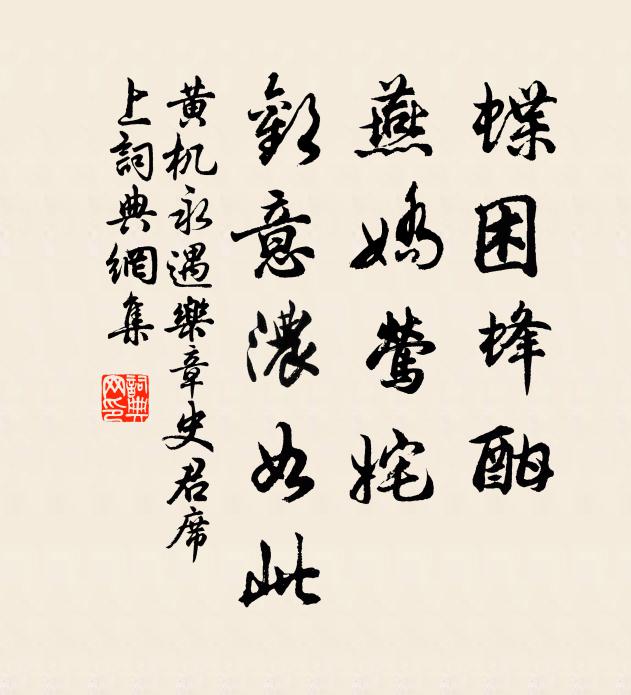 蝶困蜂酣
燕嬌鶯姹
歡意濃如此
黃机永遇樂章史君席
上詞典網集
詞典
网印